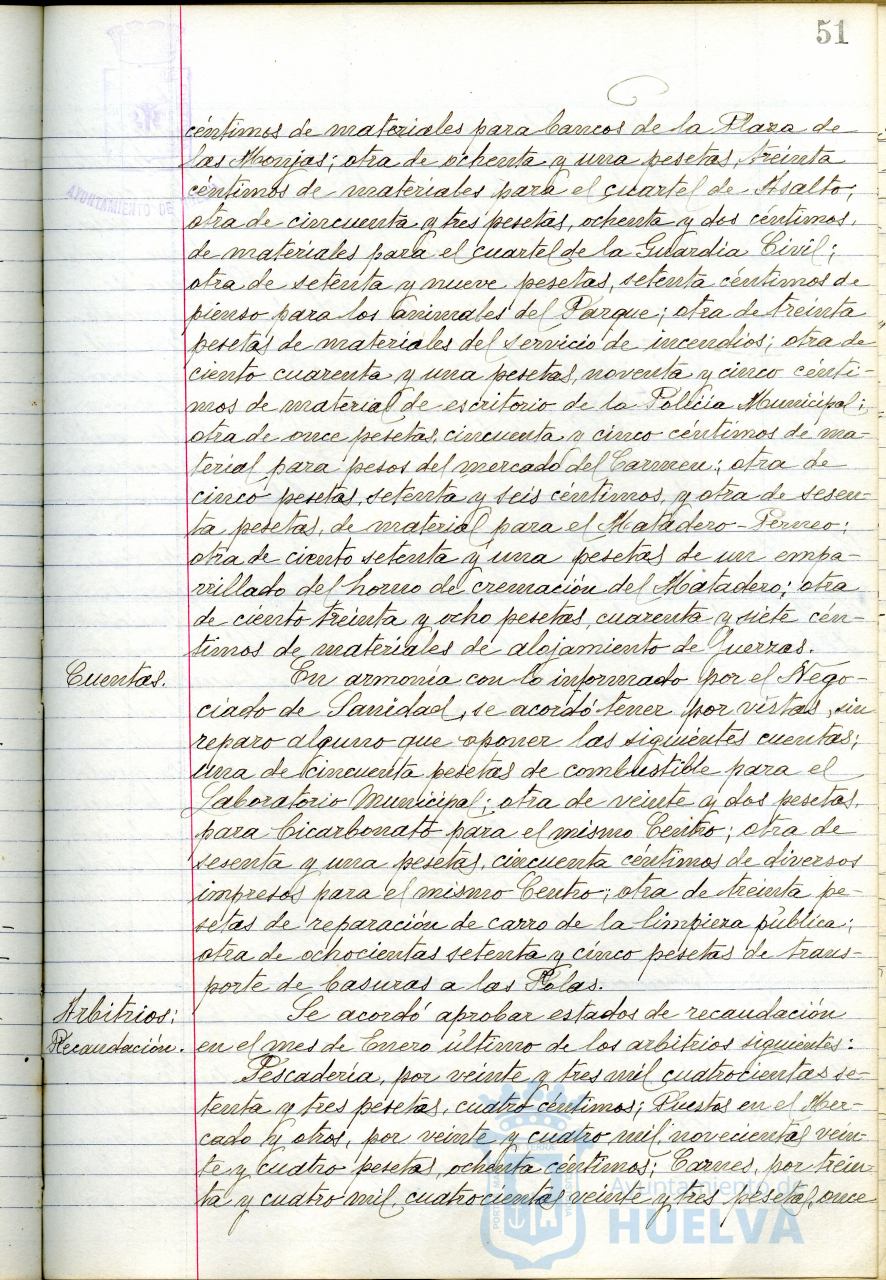 51
céntimos de materiales para bancos de la Plaza de
las Monjas; otra de ochenta y una pesetas, treinta
céntimos de materiales para el cuartel de Asalto;
otra de cincuenta y tres pesetas, ochenta y dos céntimos,
de materiales para el cuartel de la Guardia Civil;
otra de setenta y nueve pesetas, setenta céntimos de
pienso para los animales del Parque; otra de treinta
pesetas de materiales del servicio de incendios; otra de
ciento cuarenta y una pesetas, noventa y cinco cénti-
mos de material de escritorio de la Policía Municipal;
otra de once pesetas, cincuenta y cinco céntimos de ma-
terial para pesos del mercado del Carmen; otra de
cinco pesetas, setenta y seis céntimos, y otra de sesen-
ta pesetas, de material para el Matadero-Perneo;
otra de ciento setenta y una pesetas de un empa-
rrillado del horno de cremación del Matadero; otra
de ciento treinta y ocho pesetas, cuarenta y siete cén-
timos de materiales de alojamiento de fuerzas.
Cuentas. En armonía con lo informado por el Nego-
ciado de Sanidad, se acordó tener por vistas, sin
reparo alguno que oponer las siguientes cuentas;
una de cincuenta pesetas de combustible para el
Laboratorio Municipal; otra de veinte y dos pesetas,
para bicarbonato para el mismo Centro; otra de
sesenta y una pesetas, cincuenta céntimos de diversos
impresos para el mismo Centro; otra de treinta pe-
setas de reparación de carro de la limpieza pública;
otra de ochocientas setenta y cinco pesetas de trans-
porte de basuras a las
Arbitrios; Se acordó aprobar estados de recaudación
Recaudación. en el mes de Enero último de los arbitrios siguientes:
Pescadería, por veinte y tres mil cuatrocientas se-
tenta y tres pesetas, cuatro céntimos; Puestos en el Mer-
cado y otros, por veinte y cuatro mil, novecientas vein-
te y cuatro pesetas, ochenta céntimos; Carnes, por trein-
ta y cuatro mil, cuatrocientas veinte y tres pesetas, once
AYUNTAMIENTO DE
Ayuntamiento de
HUELVA